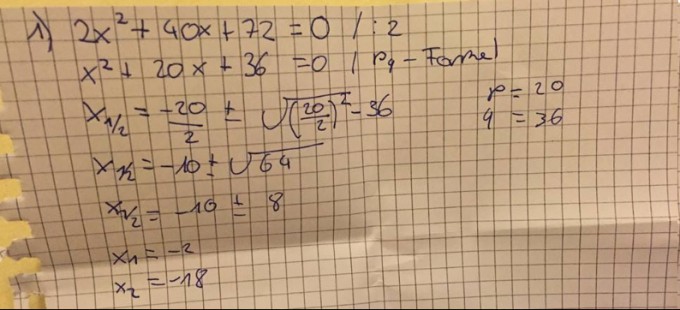 1) 2x² + 40x + 72 = 0 / : 2
x² + 20x + 36 = 0 | pq - Formel
x1/2 = -20/2 ± √((20/2)² - 36)
p = 20
q = 36
x1/2 = -10 ± √64
x1/2 = -10 ± 8
x1 = -2
x2 = -18